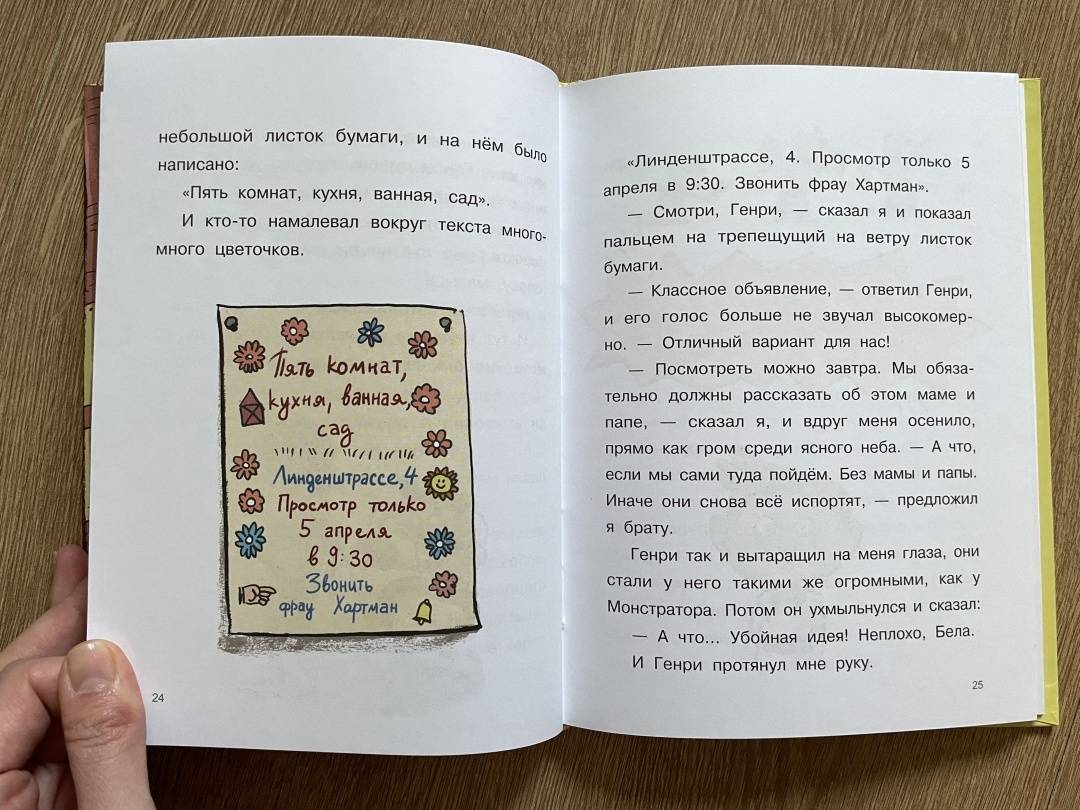 небольшой листок бумаги, и на нём было
написано:
«Пять комнат, кухня, ванная, сад».
И кто-то намалевал вокруг текста много-
много цветочков.
Пять комнат,
кухня, ванная,
сад
Линденштрассе, 4
Просмотр только
5 апреля
в 9:30
Звонить
фрау Хартман
24
«Линденштрассе, 4. Просмотр только 5
апреля в 9:30. Звонить фрау Хартман».
— Смотри, Генри, — сказал я и показал
пальцем на трепещущий на ветру листок
бумаги.
— Классное объявление, — ответил Генри,
и его голос больше не звучал высокомер-
но. — Отличный вариант для нас!
— Посмотреть можно завтра. Мы обяза-
тельно должны рассказать об этом маме и
папе, — сказал я, и вдруг меня осенило,
прямо как гром среди ясного неба. — А что,
если мы сами туда пойдём. Без мамы и папы.
Иначе они снова всё испортят, — предложил
я брату.
Генри так и вытаращил на меня глаза, они
стали у него такими же огромными, как у
Монстратора. Потом он ухмыльнулся и сказал:
— А что... Убойная идея! Неплохо, Бела.
И Генри протянул мне руку.
25